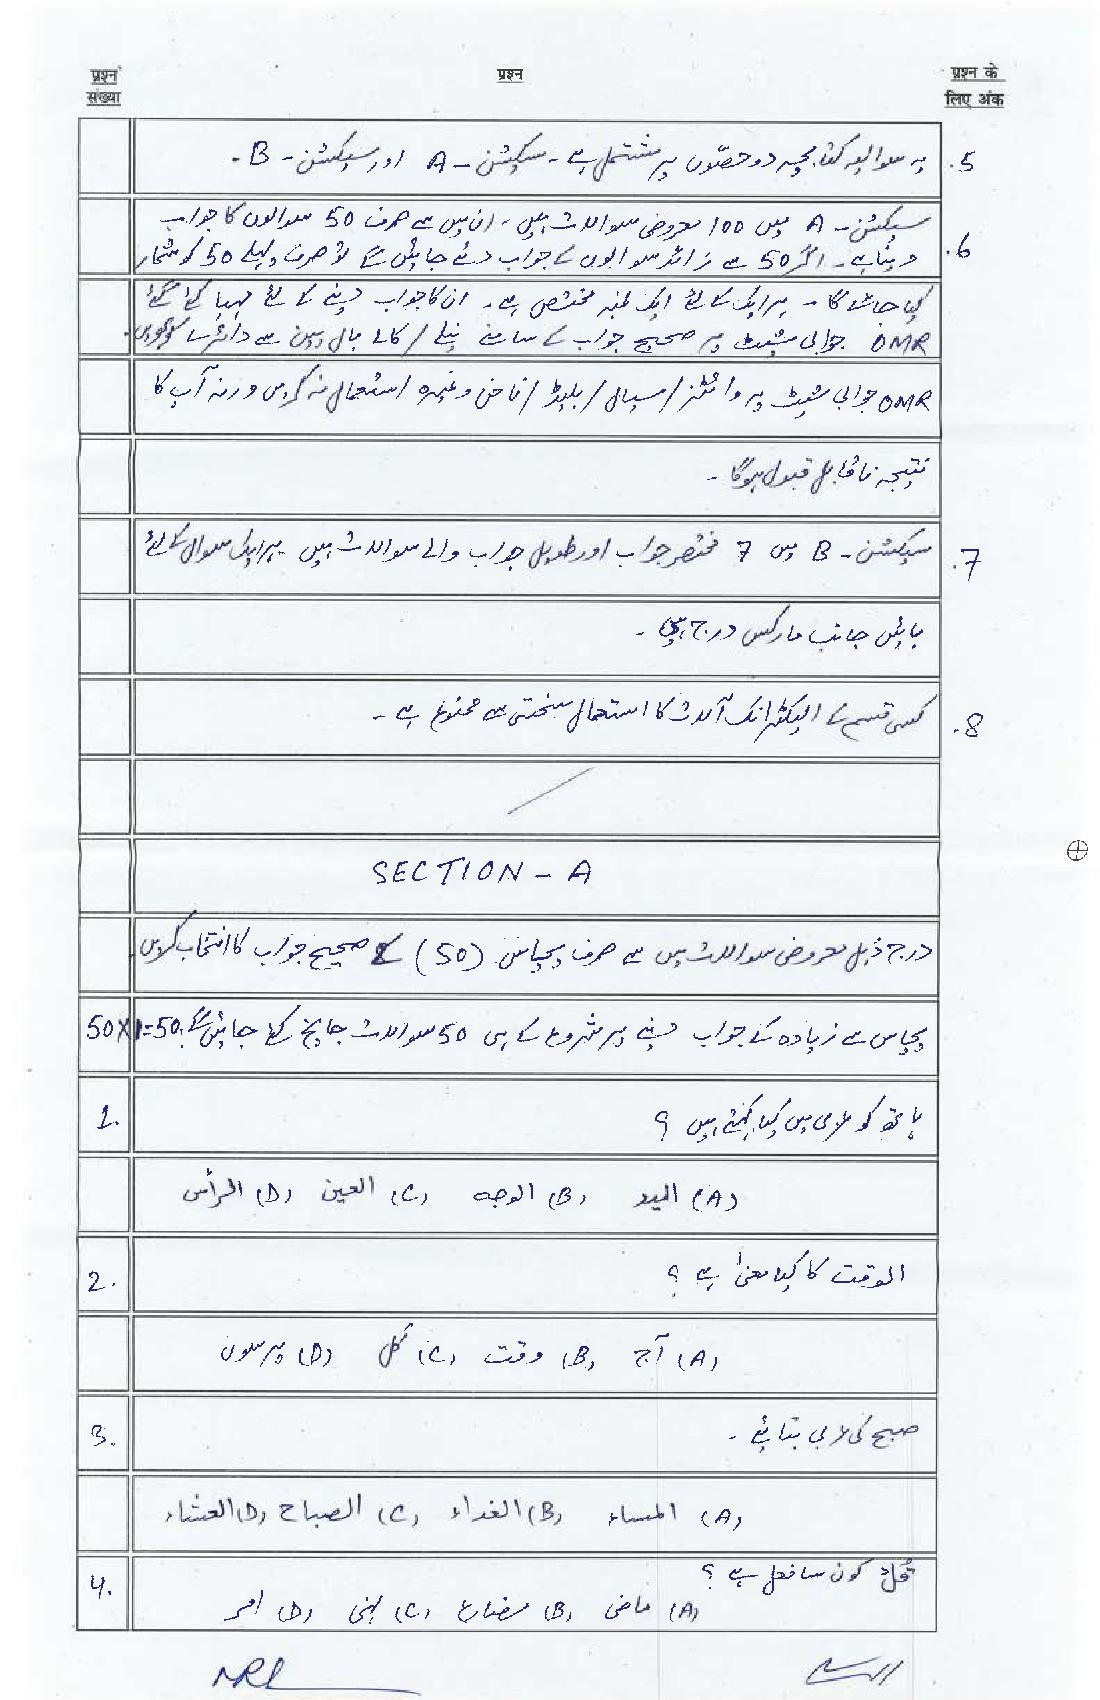 प्रश्न संख्या
प्रश्न
प्रश्न के लिए अंक
5. یہ سوالیہ کتابچہ دو حصّوں پر مشتمل ہے - سیکشن - A اور سیکشن - B -
6. سیکشن - A میں 100 معروضی سوالات ہیں - ان میں سے صرف 50 سوالوں کا جواب
دینا ہے - اگر 50 سے زائد سوالوں کے جواب دئے جائیں گے تو صرف پہلے 50 کو شمار
کیا جائے گا - ہر ایک کے لئے ایک نمبر مختص ہے - ان کا جواب دینے کے لئے مہیا کئے گئے
OMR جوابی شیٹ پر صحیح جواب کے سامنے نیلے / کالے بال پین سے دائرے
OMR جوابی شیٹ پر وائٹنر / سیال / بلیڈ / ناخن وغیرہ استعمال نہ کریں ورنہ آپ کا
نتیجہ ناقابل قبول ہوگا -
7. سیکشن - B میں 7 مختصر جواب اور طویل جواب والے سوالات ہیں - ہر ایک سوال کے لئے
بائیں جانب مارکس درج ہیں -
8. کسی قسم کے الیکٹرانک آلات کا استعمال سختی سے ممنوع ہے -
SECTION - A
درج ذیل معروضی سوالات میں سے صرف پچاس (50) کے صحیح جواب کا انتخاب کریں
پچاس سے زیادہ کے جواب دینے پر شروع کے ہی 50 سوالات جانچ کئے جائیں گے 50×1=50
1. ہاتھ کو عربی میں کیا کہتے ہیں ؟
(A) الید (B) الوجہ (C) العین (D) الرأس
2. الوقت کا کیا معنیٰ ہے ؟
(A) آج (B) وقت (C) کل (D) پرسوں
3. صبح کی عربی بتائیے -
(A) المساء (B) الغداء (C) الصباح (D) العشاء
4. کون سا فعل ہے ؟
(A) ماضی (B) مضارع (C) نہی (D) امر